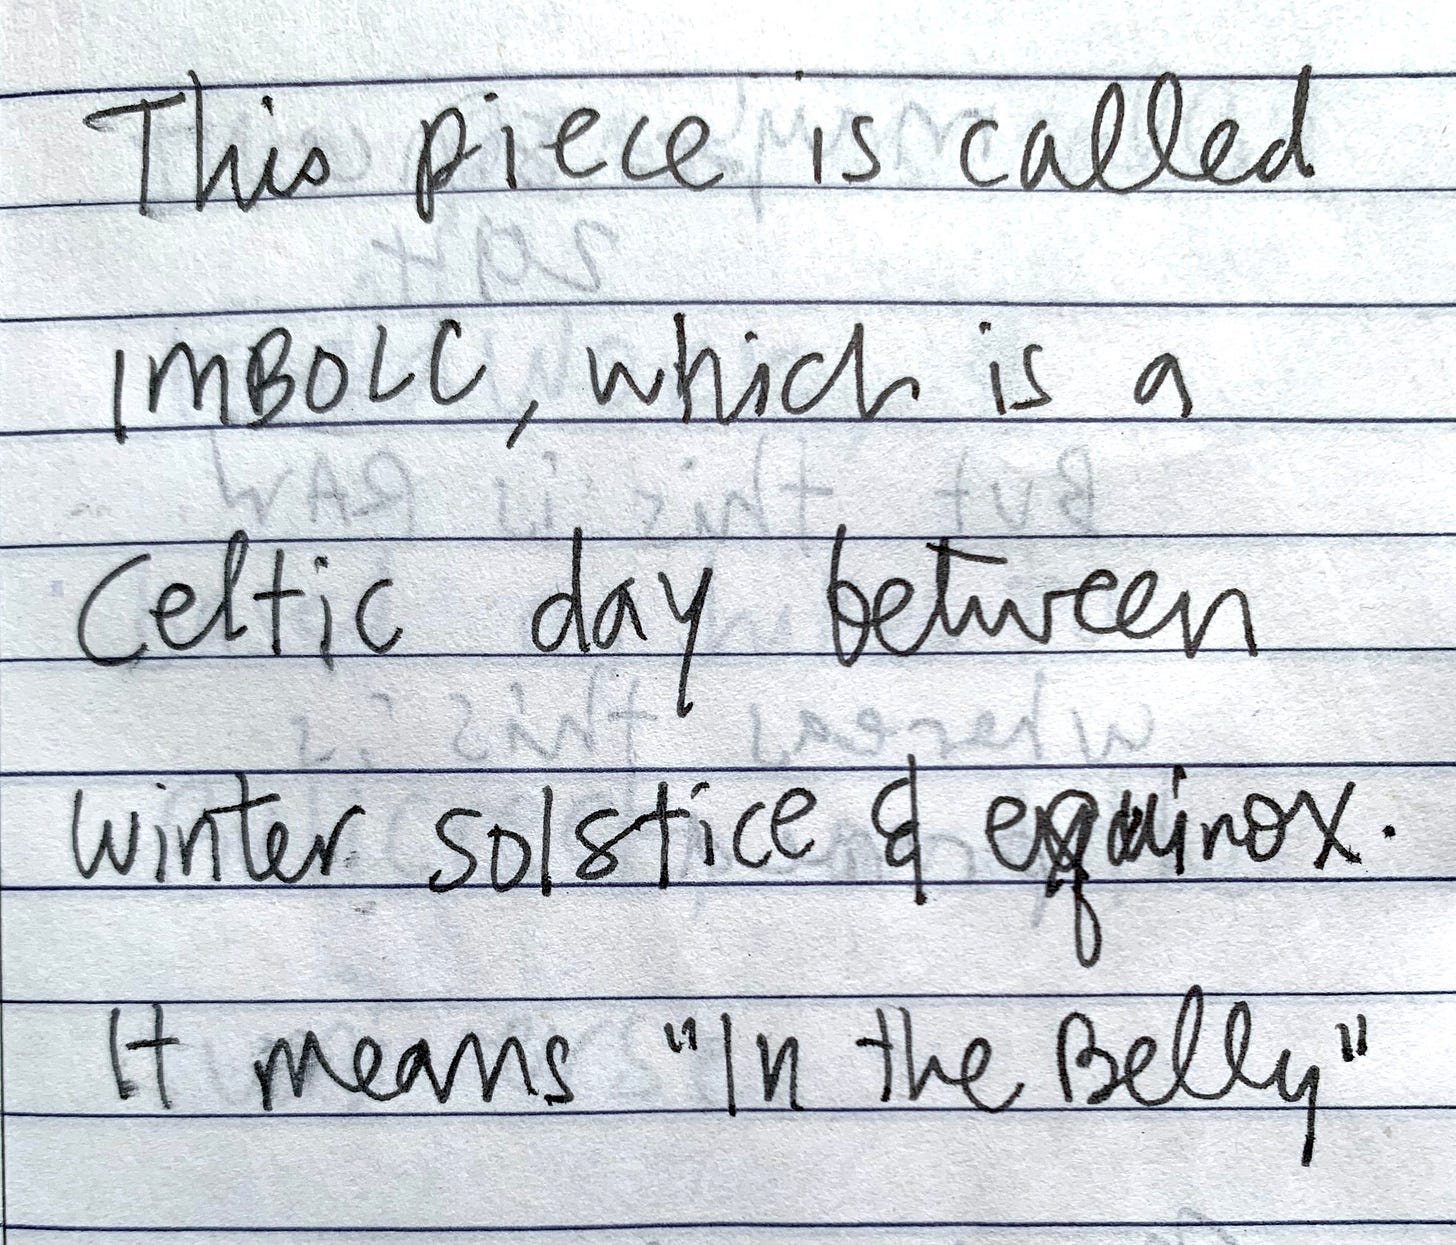 This piece is called
IMBOLC, which is a
Celtic day between
winter solstice & equinox.
It means "In the Belly"